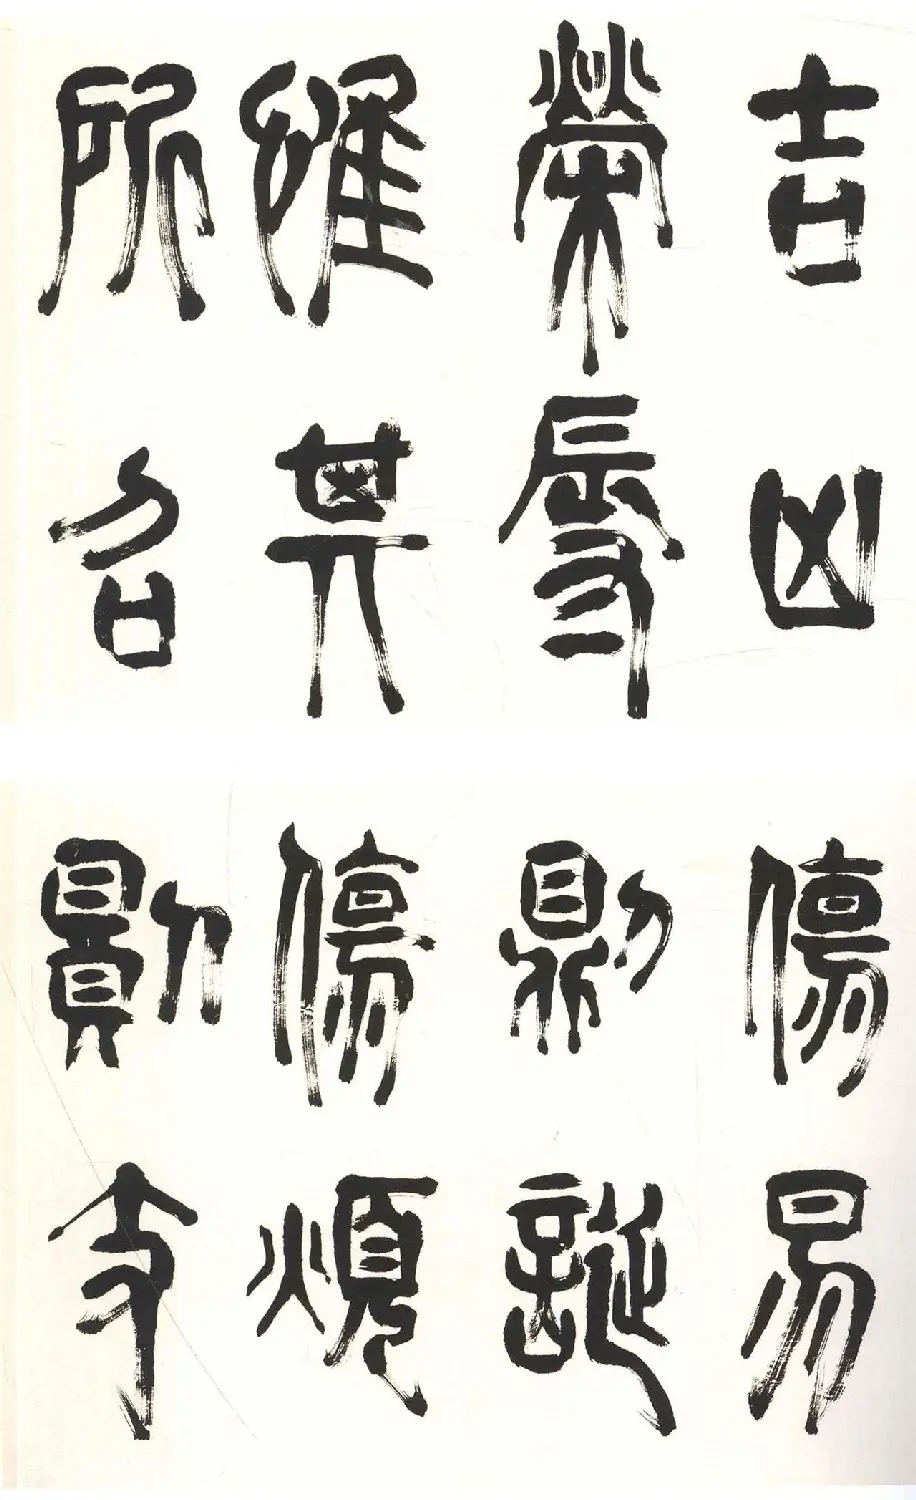 吉凶
榮辱
惟其
所召
傷易
則誕
傷煩
則支